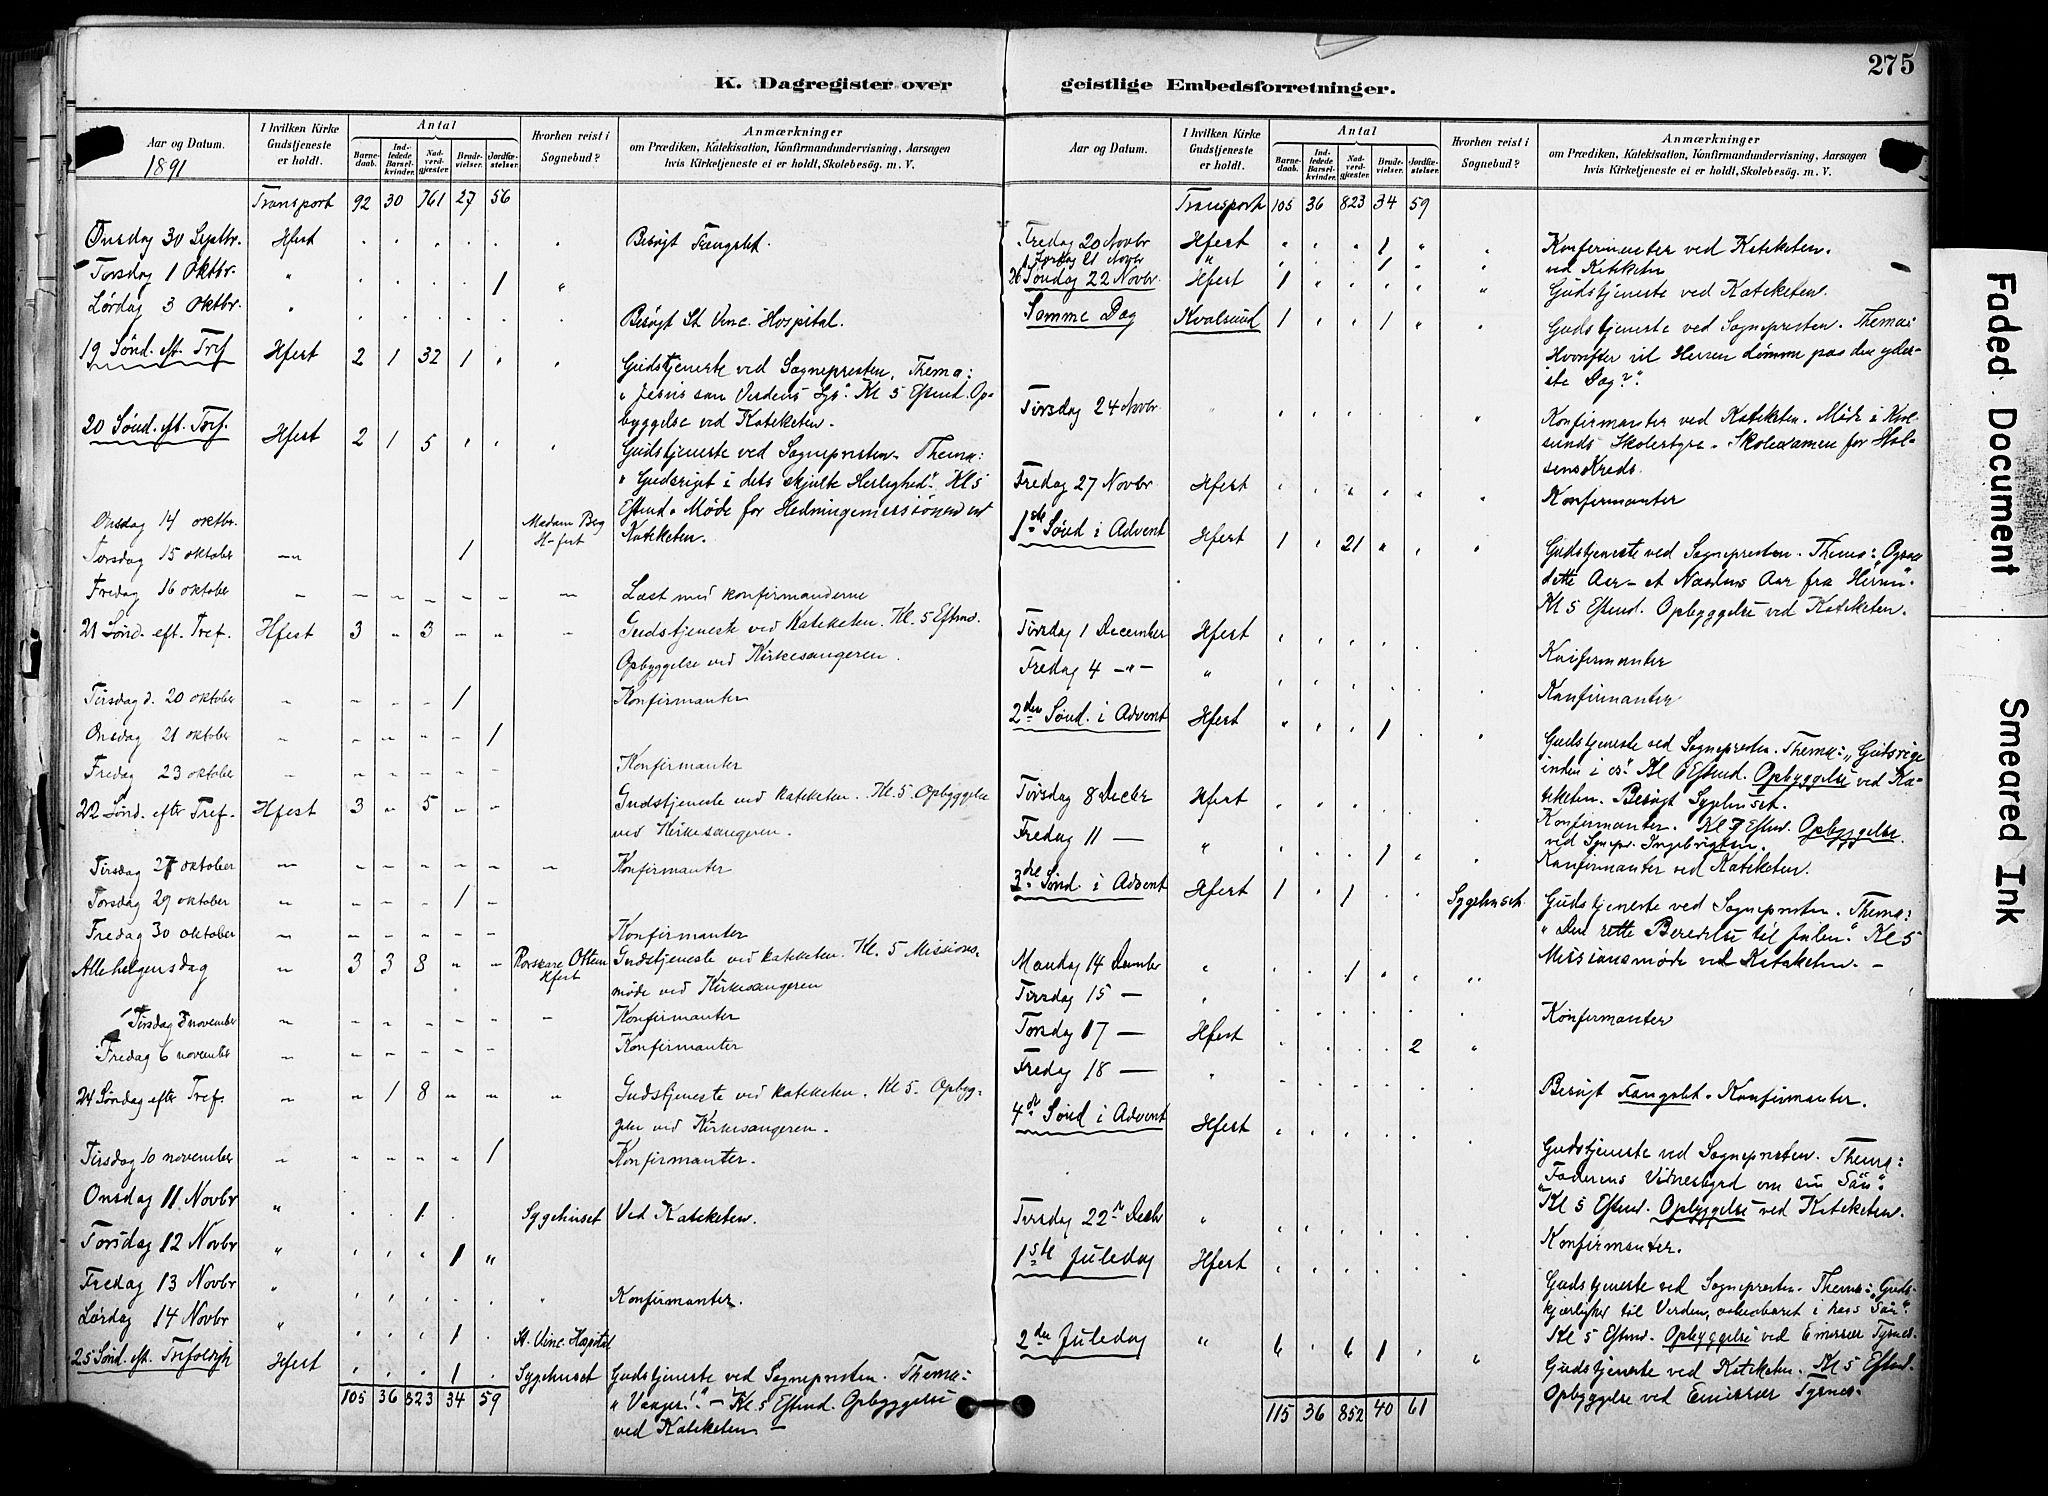 275
K. Dagregister over geistlige Embedsforretninger.
Aar og Datum.
1891
I hvilken Kirke Gudstjeneste er holdt.
Antal
Barnedaab.
Indledede Barselkvinder.
Nadverdgjester.
Brudevielser.
Jordfæstelser.
Hvorhen reist i Sognebud?
Anmærkninger
om Prædiken, Katekisation, Konfirmandundervisning, Aarsagen
hvis Kirketjeneste ei er holdt, Skolebesøg. m. V.
Transport 92 30 761 27 56
Onsdag 30 Septbr. Hfest Besøgt Fængslet.
Torsdag 1 Oktbr. " 1 "
Lørdag 3 Oktbr. " Besøgt St. Vinc. Hospital.
19 Sønd. eft. Tref Hfest 2 1 32 1 Gudstjeneste ved Sognepresten. Thema:
"Jesus som Verdens Lys". Kl 5 Eftmd. Op-
byggelse ved Kateketen.
20 Sønd. eft. Tref. Hfest 2 1 5 Gudstjeneste ved Sognepresten. Thema:
"Gudsriget i dets skjulte Herlighed". Kl 5
Eftmd. Møde for Hedningemissionen ved
Kateketen.
Onsdag 14 oktbr. Madam Berg H-fest
Torsdag 15 oktober -"- 1
Fredag 16 oktober Læst med konfirmanderne
21 Sønd. eft. Tref. Hfest 3 " 3 Gudstjeneste ved Kateketen. Kl. 5 Eftmd.
Opbyggelse ved Kirkesangeren.
Tirsdag d. 20 oktober 1 Konfirmanter
Onsdag 21 oktober 1
Fredag 23 oktober Konfirmanter
22 Sønd. efter Tref. Hfest 3 " 5 Gudstjeneste ved kateketen. Kl. 5. Opbyggelse
ved Kirkesangeren.
Tirsdag 27 oktober Konfirmanter
Torsdag 29 oktober 1
Fredag 30 oktober Konfirmanter
Allehelgensdag " 3 3 8 Hfest Gudstjeneste ved kateketen. Kl. 5 Missions-
møde ved Kirkesangeren
Tirsdag 3 november Konfirmanter
Fredag 6 november Konfirmanter
24 Søndag efter Tref. " 1 8 Gudstjeneste ved kateketen. Kl 5. Opbyg-
gelse ved Kirkesangeren.
Tirsdag 10 november 1 Konfirmanter.
Onsdag 11 Novbr " 1 Sygehuset Ved Kateketen.
Torsdag 12 Novbr " 1 "
Fredag 13 Novbr " Konfirmanter.
Lørdag 14 Novbr " 1 St. Vinc. Hospital
25 Sønd. eft. Trefoldigh Hfest 1 Sygehuset Gudstjeneste ved Sognepresten. Thema:
"Vaager!" - Kl. 5 Eftmd. Opbyggelse
ved Kateketen
105 36 823 34 59
Aar og Datum.
I hvilken Kirke Gudstjeneste er holdt.
Antal
Barnedaab.
Indledede Barselkvinder.
Nadverdgjester.
Brudevielser.
Jordfæstelser.
Hvorhen reist i Sognebud?
Anmærkninger
om Prædiken, Katekisation, Konfirmandundervisning, Aarsagen
hvis Kirketjeneste ei er holdt, Skolebesøg. m. V.
Transport 105 36 823 34 59
Fredag 20 Novbr Hfest 1 Konfirmanter ved Kateketen.
Lørdag 21 Novbr " 1 ved Kateketen
26 Søndag 22 Novbr. Hfest 1 Gudstjeneste ved Kateketen.
Samme Dag Kvalsund 1 1 Gudstjeneste ved Sognepresten. Thema:
Hvorefter vil Herren dømme paa den yder-
ste Dag?".
Tirsdag 24 Novbr. Konfirmanter ved Kateketen. Møde i Kval-
sunds Skolestyre. Skoleexamen for
Kreds.
Fredag 27 Novbr Hfest Konfirmanter
1ste Sønd i Advent Hfest 1 21 Gudstjeneste ved Sognepresten. Thema: Ogsaa
dette Aar - et Naadens Aar fra Herren".
Kl 5 Eftmd. Opbyggelse ved Kateketen.
Tirsdag 1 December Hfest Konfirmanter
Fredag 4 -"- " Konfirmanter
2den Sønd. i Advent Hfest 1 Gudstjeneste ved Sognepresten. Thema: "Gudsrige
inden i os". Kl 6 Eftmd. Opbyggelse ved Ka-
teketen. Besøgt Sygehuset.
Tirsdag 8 Decbr Hfest Konfirmanter. Kl 7 Eftmd. Opbyggelse
ved Sognepr. Ingebrigtsen.
Fredag 11 — " 1 Konfirmanter ved Kateketen.
3die Sønd. i Advent Hfest 1 1 Sygehuset Gudstjeneste ved Sognepresten. Thema:
"Den rette Beredelse til Julen." Kl 5
Missionsmøde ved Kateketen. -
Mandag 14 December " 1 "
Tirsdag 15 — " Konfirmanter
Torsdag 17 — Hfest 2
Fredag 18 — " Besøgt Fængslet. Konfirmanter.
4de Sønd i Advent Hfest Gudstjeneste ved Sognepresten. Thema:
"Faderens Vidnesbyrd om sin Søn".
Kl 5 Eftmd. Opbyggelse ved Kateketen.
Tirsdag 22 Decbr " Konfirmanter.
1ste Juledag Hfest Gudstjeneste ved Sognepresten. Thema: "Guds
kjærlighed til Verden, aabenbaret i hans Søn".
Kl 5 Eftmd. Opbyggelse ved Emissær Tysnes.
2den Juledag " 6 6 1 Gudstjeneste ved Kateketen. Kl 5 Eftmd.
Opbyggelse ved Emissær Tysnes.
115 36 852 40 61
Faded Document
Smeared Ink